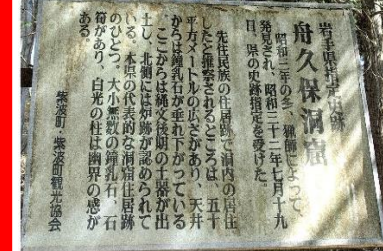 岩手県指定史跡
舟久保洞窟
昭和二年の冬、猟師によって、
発見され、昭和三十二年七月十九
日、県の史跡指定を受けた。
先住民族の住居跡で洞内の居住
したと推察されるところは、五十
平方メートルの広さがあり、天井
からは鍾乳石が垂れ下がっている
。ここからは縄文後期の土器が出
土し、北側には炉跡が認められて
いる。本県の代表的な洞窟住居跡
のひとつ。大小無数の鐘乳石、石
筍があり、白光の柱は幽界の感が
ある。
紫波町・紫波町観光協会